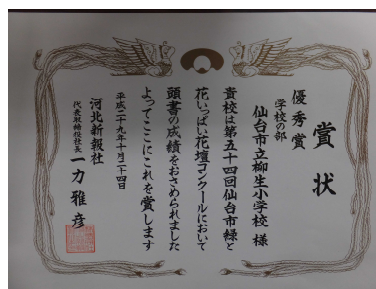 賞状
優秀賞
学校の部
仙台市立柳生小学校 様
貴校は第五十四回仙台市緑と
花いっぱい花壇コンクールにおいて
頭書の成績をおさめられました
よってここにこれを賞します
平成二十九年十月二十四日
河北新報社
代表取締役社長 一力雅彦